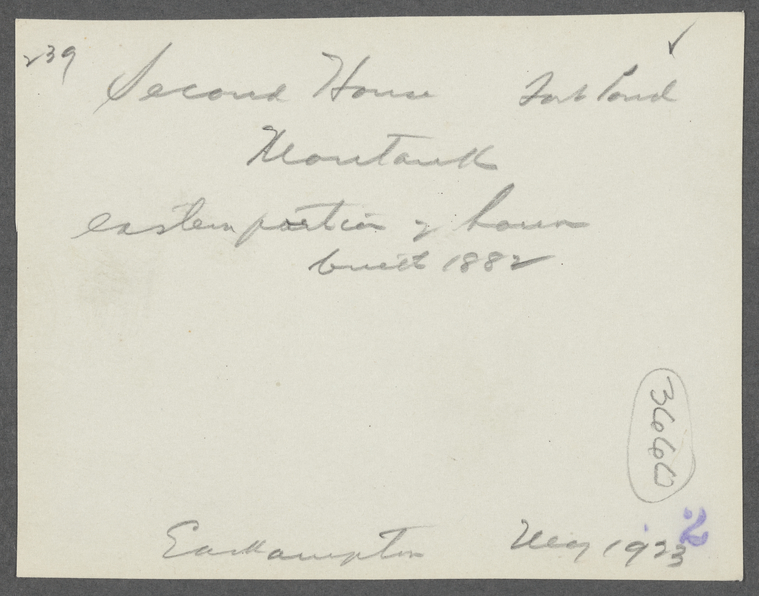 239 ✓
Second House Fort Pond
Montauk
eastern portion of house
built 1882
3666
Easthampton 1923
2